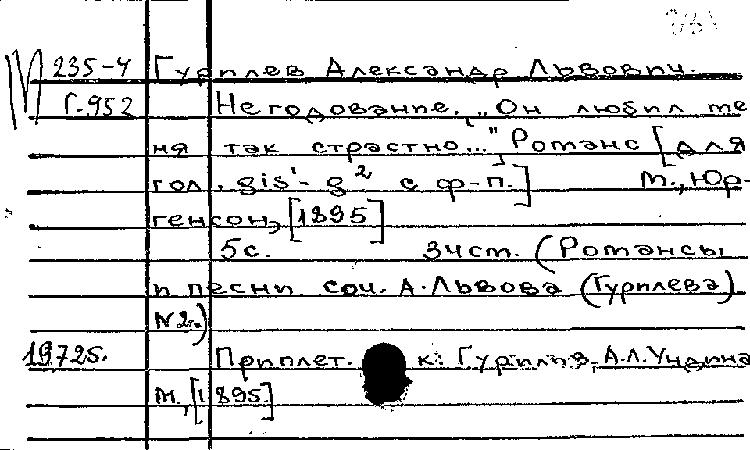 235-4 Гурилев Александр Львович.
Г-952 Негодование. „Он любил ме
ня так страстно..." Романс [для
гол. gis¹-g² с ф-п.] М., Юр-
генсон, [1895]
5с. 3чст. (Романсы
и песни соч. А. Львова (Гурилева)
N2.)
19725. Приплет. к: Гурилев, А.Л.
М., [1895]